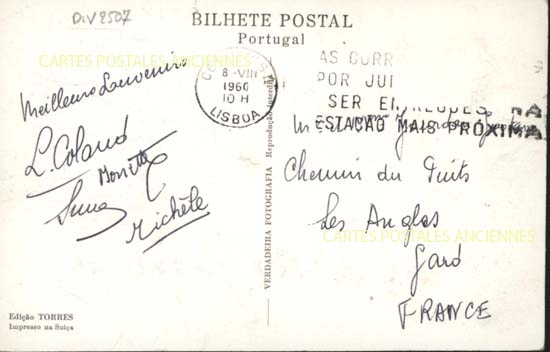 DIV2507
BILHETE POSTAL
Portugal
CARTES POSTALES ANCIENNES
8-VIII
1960
10 H
LISBOA
AS CORR
POR JUI
SER EN
ESTAÇÃO MAIS PRÓXIMA
Meilleurs Souvenirs
L. Coland
Monitte
Michèle
VERDADEIRA FOTOGRAFIA — Reprodução interdita
Chemin du Puits
Les Angles
CARTES POSTALES ANCIENNES
Gard
FRANCE
Edição TORRES
Impresso na Suiça